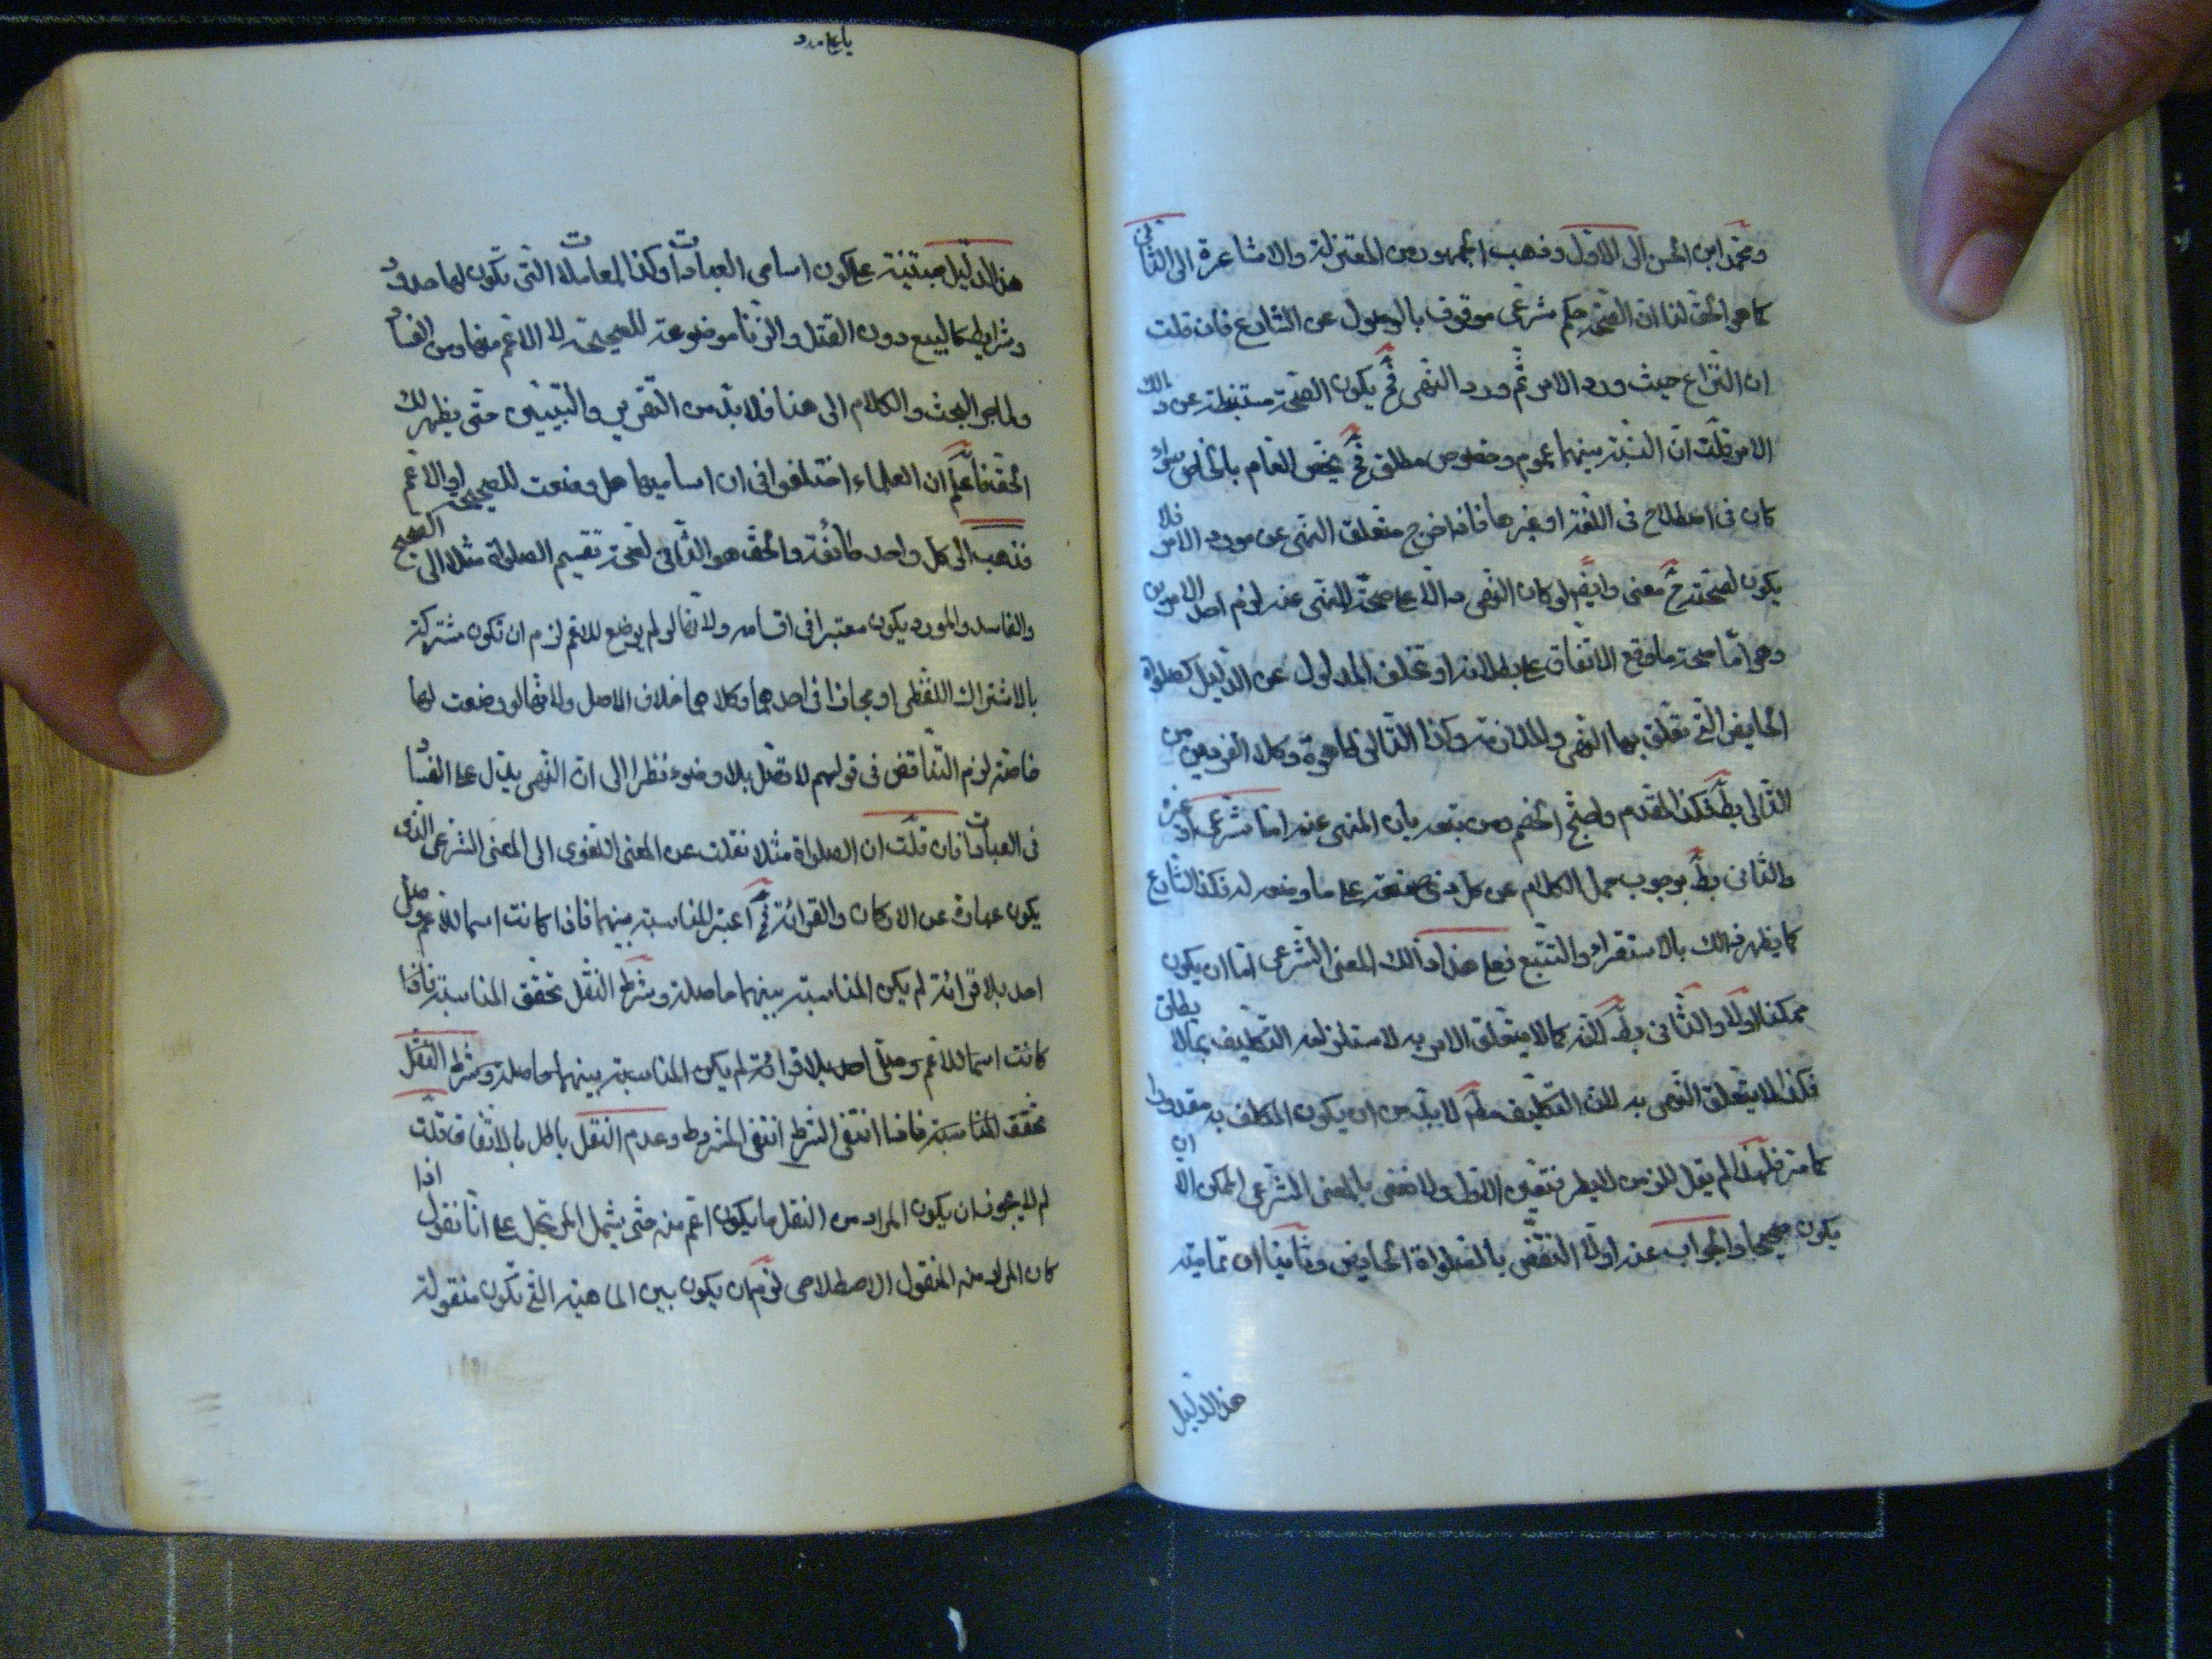 ومحمد ابن الحسن الى الاول وذهب الجمهور من المعتزلة والاشاعرة الى الثانى
كما هو الحق لنا ان الصحة حكم شرعى موقوف بالوصول عن الشارع فان قلت
ان النزاع حيث ورد الامر ثم ورد النهى فح يكون الصحة مستنبطة عن ذالك
الامر قلت ان النسبة بينهما عموم وخصوص مطلق فح يخص العام بالخاص سواء
كان فى اصطلاح فى اللغة او غيرها فانه اخرج متعلق النهى عن مورد الامر فلا
يكون لصحته ح معنى وايضا لو كان النهى دالا على صحة المنهى عنه لزم احد الامرين
وهو اما صحة ما وقع الاتفاق على بطلانه او تخلف المدلول عن الدليل كصلوة
الحايض التى تعلق بها النهى والملازمة وكذا التالى ظاهرة وكلا الفردين من
التالى بط فكذا المقدم واحتج الخصم ومن تبعه بان المنهى عنه اما شرعى او غيره
والثانى بط بوجوب حمل الكلام عن كل ذى صنعة على ما وضعه له فكذا الشارع
كما يظهر ذالك بالاستقراء والتتبع فعلى هذا ذالك المعنى الشرعى اما ان يكون
ممكنا اولا والثانى بط لانه كما لا يتعلق الامر به لاستلزامه التكليف بما لا يطاق
فكذا لا يتعلق النهى به لان التكليف مط لا بد من ان يكون المكلف به مقدورا
كما مر فلهذا لم يقل للزمن لا يطر فتعين الاول ولا نعنى بالمعنى الشرعى الممكن الا ان
يكون صحيحا والجواب عنه اولا النقض بالصلواة الحايض وثانيا ان تمامية
هذا الدليل
هذا الدليل مبتنية على كون اسامى العبادات وكذا المعاملات التى تكون لها حدود
وشرايط كالبيع دون القتل والزنا موضوعة للصحيحة لا الاعم منها ومن الفساد
ولما جر البحث والكلام الى هنا فلا بد من التقرير والتبيين حتى يظهر لك
الحق فاعلم ان العلماء اختلفوا فى ان اساميها هل وضعت للصحيح او الاعم
فذهب الى كل واحد طائفة والحق هو الثانى لصحة تقسيم الصلواة مثلا الى الصحيح
والفاسد والمورد يكون معتبرا فى اقسامه ولانها لو لم يوضع للاعم لزم ان تكون مشتركة
بالاشتراك اللفظى او مجازا فى احدهما وكلاهما خلاف الاصل ولانها لو وضعت لها
خاصة لزم التناقض فى قولهم لا تصل بلا وضوء نظرا الى ان النهى يدل على الفساد
فى العبادات فان قلت ان الصلواة مثلا نقلت عن المعنى اللغوى الى المعنى الشرعى الذى
يكون عبارة عن الاركان والقرائة فح اعتبر المناسبة بينهما فاذا كانت اسما للاعم وصلى
احد بلا قرائة لم يكن المناسبة بينهما حاصلة وشرط النقل تحقق المناسبة فاذا
كانت اسما للاعم وصلى احد بلا قرائة لم يكن المناسبة بينهما حاصلة وشرط النقل
تحقق المناسبة فاذا انتفى الشرط انتفى المشروط وعدم النقل باطل بالاتفاق قلت
لم لا يجوز ان يكون المراد من النقل ما يكون اعم منه حتى يشمل المرتجل على انا نقول اذا
كان المراد منه المنقول الاصطلاحى لزم ان يكون بين الماهية التى تكون منقولة